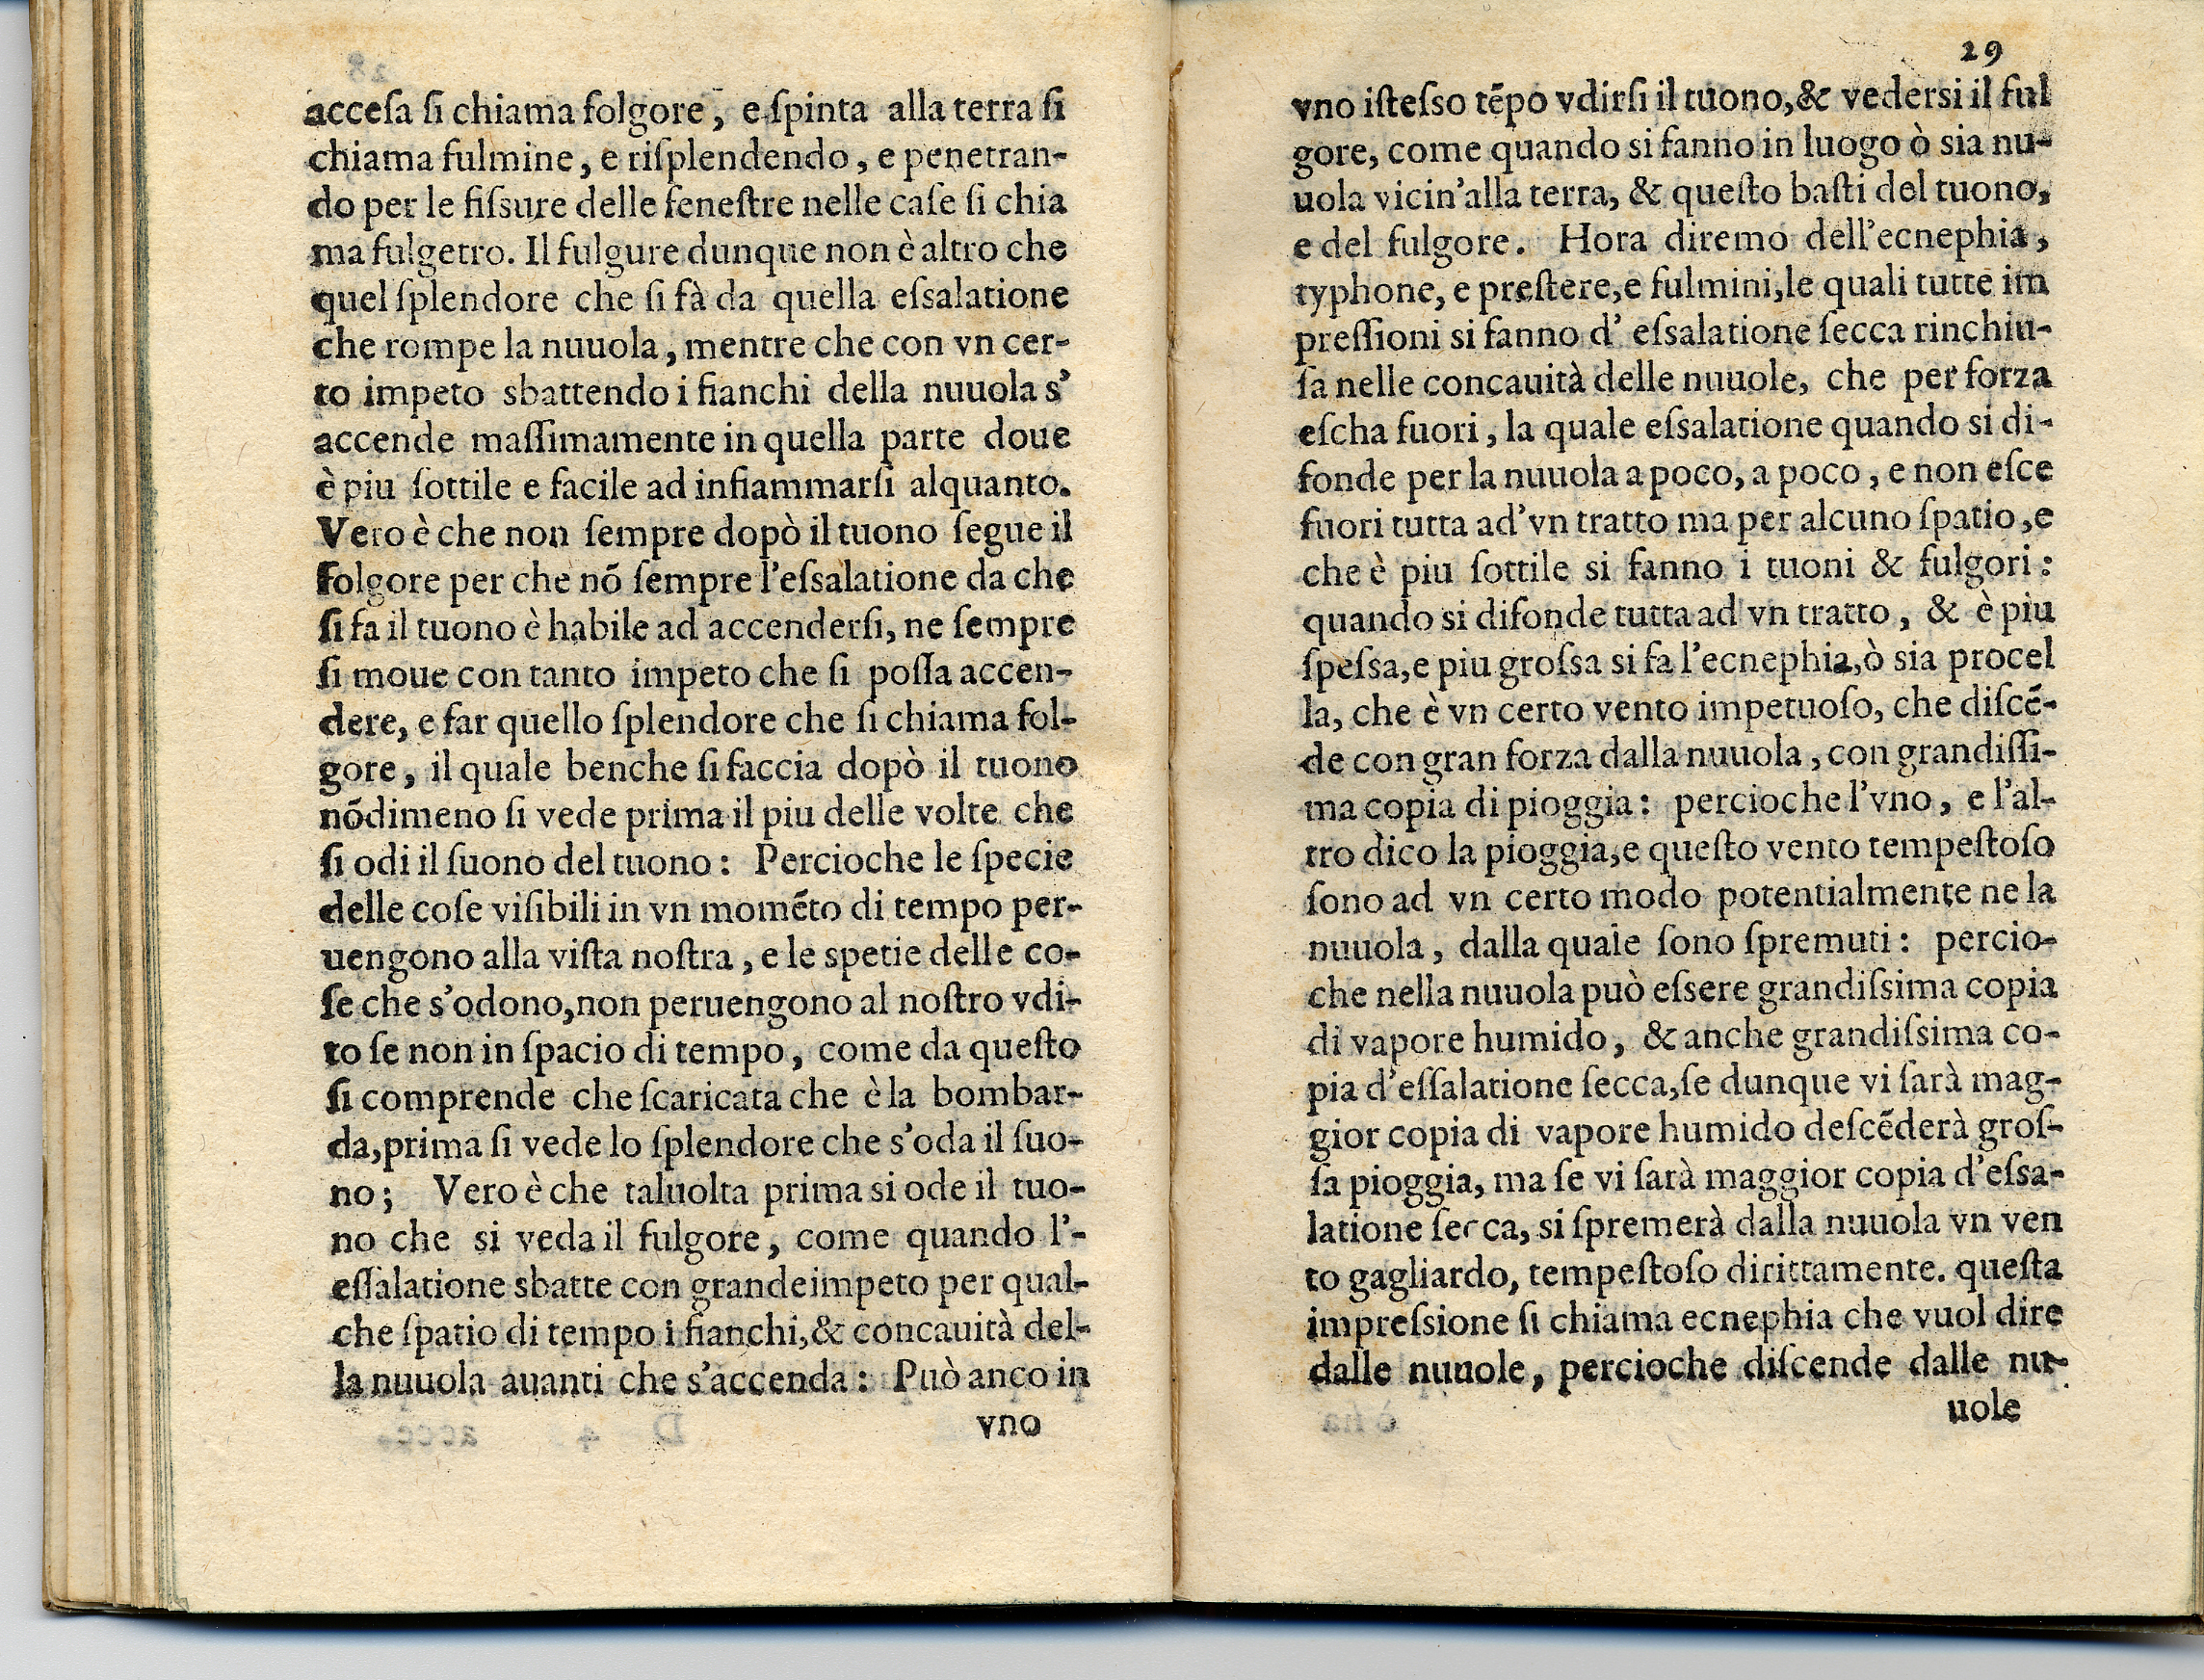 acceſa ſi chiama folgore, e ſpinta alla terra ſi
chiama fulmine, e riſplendendo, e penetran-
do per le fiſsure delle feneſtre nelle caſe ſi chia
ma fulgetro. Il fulgure dunque non è altro che
quel ſplendore che ſi fà da quella eſsalatione
che rompe la nuuola, mentre che con vn cer-
to impeto sbattendo i fianchi della nuuola s'
accende maſſimamente in quella parte doue
è piu ſottile e facile ad infiammarſi alquanto.
Vero è che non ſempre dopò il tuono ſegue il
folgore per che nõ ſempre l'eſsalatione da che
ſi fa il tuono è habile ad accenderſi, ne ſempre
ſi moue con tanto impeto che ſi poſſa accen-
dere, e far quello ſplendore che ſi chiama fol-
gore, il quale benche ſi faccia dopò il tuono
nõdimeno ſi vede prima il piu delle volte che
ſi odi il ſuono del tuono: Percioche le ſpecie
delle coſe viſibili in vn momẽto di tempo per-
uengono alla viſta noſtra, e le spetie delle co-
ſe che s'odono, non peruengono al noſtro vdi-
to ſe non in ſpacio di tempo, come da queſto
ſi comprende che ſcaricata che è la bombar-
da, prima ſi vede lo ſplendore che s'oda il ſuo-
no; Vero è che taluolta prima si ode il tuo-
no che si veda il fulgore, come quando l'-
eſſalatione sbatte con grande impeto per qual-
che ſpatio di tempo i fianchi, & concauità del-
la nuuola auanti che s'accenda: Può anco in
vno
29
vno iſteſso tẽpo vdirſi il tuono, & vedersi il ful
gore, come quando si fanno in luogo ò sia nu-
uola vicin'alla terra, & queſto baſti del tuono,
e del fulgore. Hora diremo dell'ecnephia,
typhone, e preſtere, e fulmini, le quali tutte im
preſſioni si fanno d' eſsalatione ſecca rinchiu-
ſa nelle concauità delle nuuole, che per forza
eſcha fuori, la quale eſsalatione quando si di-
fonde per la nuuola a poco, a poco, e non eſce
fuori tutta ad'vn tratto ma per alcuno ſpatio, e
che è piu ſottile si fanno i tuoni & fulgori:
quando si difonde tutta ad vn tratto, & è piu
ſpeſsa, e piu groſsa si fa l'ecnephia, ò sia procel
la, che è vn certo vento impetuoſo, che diſcẽ-
de con gran forza dalla nuuola, con grandiſſi-
ma copia di pioggia: percioche l'vno, e l'al-
tro dico la pioggia, e queſto vento tempeſtoſo
ſono ad vn certo modo potentialmente ne la
nuuola, dalla quale ſono ſpremuti: percio-
che nella nuuola può eſsere grandiſsima copia
di vapore humido, & anche grandiſsima co-
pia d'eſſalatione ſecca, ſe dunque vi ſarà mag-
gior copia di vapore humido deſcẽderà groſ-
ſa pioggia, ma ſe vi ſarà maggior copia d'eſsa-
latione ſecca, si ſpremerà dalla nuuola vn ven
to gagliardo, tempeſtoſo dirittamente. queſta
impreſsione ſi chiama ecnephia che vuol dire
dalle nuuole, percioche diſcende dalle nu-
uole